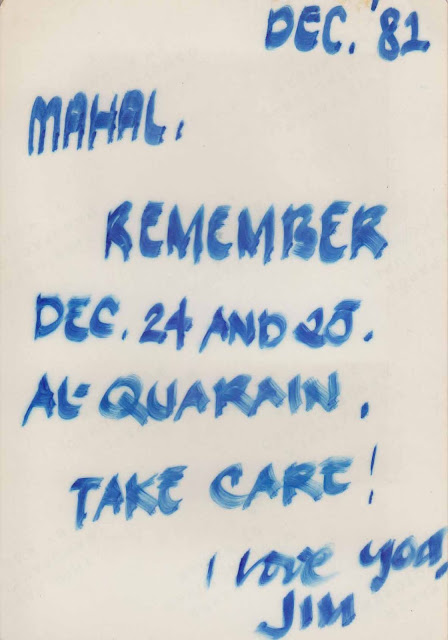 DEC. '81
MAHAL,
REMEMBER
DEC. 24 AND 25.
AL-QUARAIN,
TAKE CARE!
I love you,
JIM